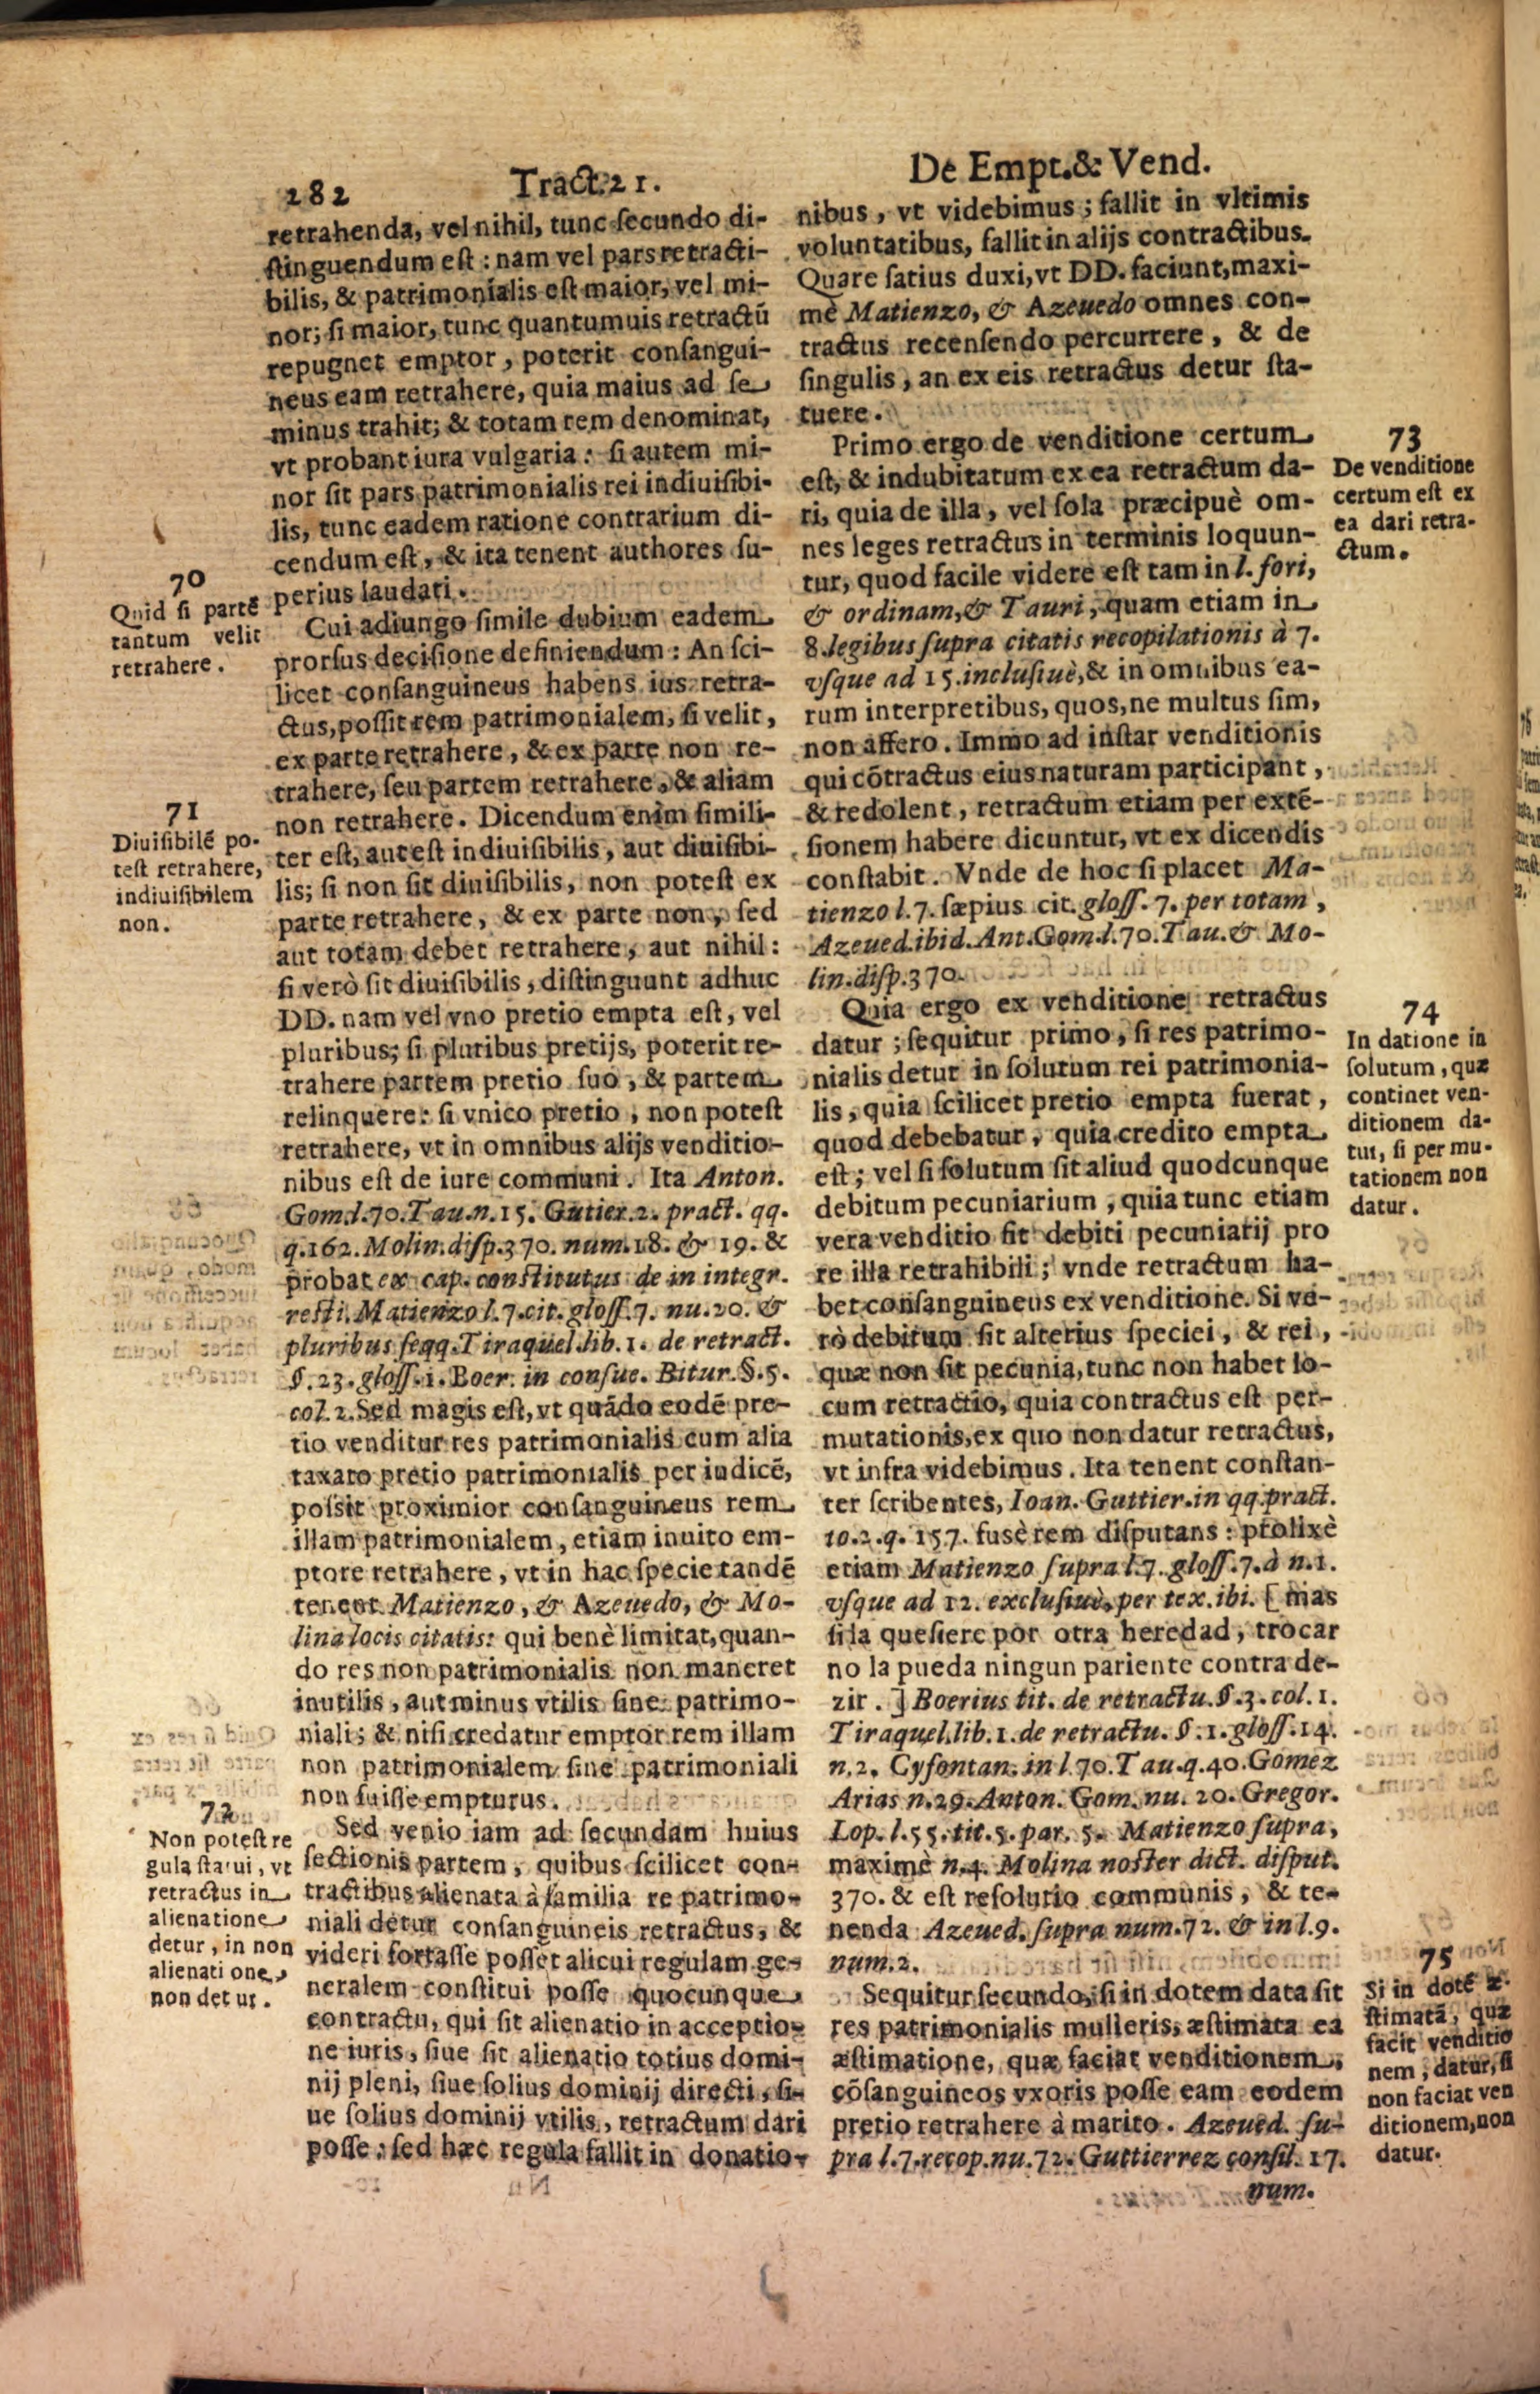 282 Tract.21. De Empt.& Vend.
retrahenda, vel nihil, tunc ſecundo di-
ſtinguendum eſt : nam vel pars retracti-
bilis, & patrimonialis eſt maior, vel mi-
nor; ſi maior, tunc quantumuis retractū
repugnet emptor, poterit conſangui-
neus eam retrahere, quia maius ad ſe
minus trahit; & totam rem denominat,
vt probant iura vulgaria : ſi autem mi-
nor ſit pars patrimonialis rei indiuiſibi-
lis, tunc eadem ratione contrarium di-
cendum eſt, & ita tenent authores ſu-
perius laudati.
70
Quid ſi partē
tantum velit
retrahere.
Cui adiungo ſimile dubium eadem
prorſus deciſione definiendum : An ſci-
licet conſanguineus habens ius retra-
ctus, poſſit rem patrimonialem, ſi velit,
ex parte retrahere, & ex parte non re-
trahere, ſeu partem retrahere, & aliam
non retrahere. Dicendum enim ſimili-
ter eſt, aut eſt indiuiſibilis, aut diuiſibi-
lis; ſi non ſit diuiſibilis, non poteſt ex
parte retrahere, & ex parte non, ſed
aut totam debet retrahere, aut nihil:
ſi verò ſit diuiſibilis, diſtinguunt adhuc
DD. nam vel vno pretio empta eſt, vel
pluribus; ſi pluribus pretijs, poterit re-
trahere partem pretio ſuo, & partem
relinquere: ſi vnico pretio, non poteſt
retrahere, vt in omnibus alijs venditio-
nibus eſt de iure communi. Ita Anton.
Gom.l.70.Tau.n.15. Gutier.2. pract. qq.
q.162.Molin.diſp.370. num.18. & 19. &
probat ex cap. conſtitutus de in integr.
reſti. Matienzo l.7.cit.gloſſ.7. nu.20. &
pluribus ſeqq.Tiraquel.lib.1. de retract.
§.23.gloſſ.1.Boer. in conſue. Bitur.§.5.
col.2.Sed magis eſt, vt quādo eodē pre-
tio venditur res patrimonialis cum alia
taxato pretio patrimonialis per iudicē,
poſsit proximior conſanguineus rem
illam patrimonialem, etiam inuito em-
ptore retrahere, vt in hac ſpecie tandē
tenent Matienzo, & Azeuedo, & Mo-
lina locis citatis: qui benè limitat, quan-
do res non patrimonialis non maneret
inutilis, aut minus vtilis ſine patrimo-
niali; & niſi credatur emptor rem illam
non patrimonialem ſine patrimoniali
non fuiſſe empturus.
71
Diuiſibilē po-
teſt retrahere,
indiuiſibilem
non.
72
Non poteſt re
gula ſtatui, vt
retractus in
alienatione
detur, in non
alienatione
non detur.
Sed venio iam ad ſecundam huius
ſectionis partem, quibus ſcilicet con-
tractibus alienata à familia re patrimo-
niali detur conſanguineis retractus, &
videri fortaſſe poſſet alicui regulam ge-
neralem conſtitui poſſe quocunque
contractu, qui ſit alienatio in acceptio-
ne iuris, ſiue ſit alienatio totius domi-
nij pleni, ſiue ſolius dominij directi, ſi-
ue ſolius dominij vtilis, retractum dari
poſſe : ſed hæc regula fallit in donatio-
nibus, vt videbimus ; fallit in vltimis
voluntatibus, fallit in alijs contractibus.
Quare ſatius duxi, vt DD. faciunt, maxi-
mè Matienzo, & Azeuedo omnes con-
tractus recenſendo percurrere, & de
ſingulis, an ex eis retractus detur ſta-
tuere.
Primo ergo de venditione certum
eſt, & indubitatum ex ea retractum da-
ri, quia de illa, vel ſola præcipuè om-
nes leges retractus in terminis loquun-
tur, quod facile videre eſt tam in l. fori,
& ordinam,& Tauri, quam etiam in
8.legibus ſupra citatis recopilationis à 7.
vſque ad 15.incluſiuè,& in omnibus ea-
rum interpretibus, quos, ne multus ſim,
non affero. Immo ad inſtar venditionis
qui cōtractus eius naturam participant,
& redolent, retractum etiam per extē-
ſionem habere dicuntur, vt ex dicendis
conſtabit. Vnde de hoc ſi placet Ma-
tienzo l.7. ſæpius cit. gloſſ. 7. per totam,
Azeued.ibid. Ant.Gom.l.70.Tau.& Mo-
lin.diſp.370.
73
De venditione
certum eſt ex
ea dari retra-
ctum.
Quia ergo ex venditione retractus
datur ; ſequitur primo, ſi res patrimo-
nialis detur in ſolutum rei patrimonia-
lis, quia ſcilicet pretio empta fuerat,
quod debebatur, quia credito empta
eſt ; vel ſi ſolutum ſit aliud quodcunque
debitum pecuniarium, quia tunc etiam
vera venditio fit debiti pecuniarij pro
re illa retrahibili ; vnde retractum ha-
bet conſanguineus ex venditione. Si ve-
rò debitum ſit alterius ſpeciei, & rei,
quæ non ſit pecunia, tunc non habet lo-
cum retractio, quia contractus eſt per-
mutationis, ex quo non datur retractus,
vt infra videbimus. Ita tenent conſtan-
ter ſcribentes, Ioan. Guttier.in qq.pract.
to.2.q. 157. fusè rem diſputans : prolixè
etiam Matienzo ſupra l.7. gloſſ.7.à n.1.
vſque ad 12. excluſiuè, per tex. ibi. [ mas
ſi la queſiere por otra heredad, trocar
no la pueda ningun pariente contra de-
zir. ] Boerius tit. de retractu.§.3.col.1.
Tiraquel.lib.1.de retractu. §.1.gloſſ.14.
n.2. Cyfontan. in l.70.Tau.q.40.Gomez
Arias n.29.Anton. Gom. nu. 20. Gregor.
Lop. l.55.tit.5.par. 5. Matienzo ſupra,
maximè n.4. Molina noſter dict. diſput.
370. & eſt reſolutio communis, & te-
nenda Azeued. ſupra num.72. & in l.9.
num.2.
74
In datione in
ſolutum, quæ
continet ven-
ditionem da-
tur, ſi per mu-
tationem non
datur.
Sequitur ſecundo, ſi in dotem data ſit
res patrimonialis mulieris, æſtimata ea
æſtimatione, quæ faciat venditionem,
cōſanguineos vxoris poſſe eam eodem
pretio retrahere à marito. Azeued. ſu-
pra l.7.recop.nu.72. Guttierrez conſil. 17.
num.
75
Si in dotē æ-
ſtimatā, quæ
facit venditio
nem, datur, ſi
non faciat ven
ditionem, non
datur.